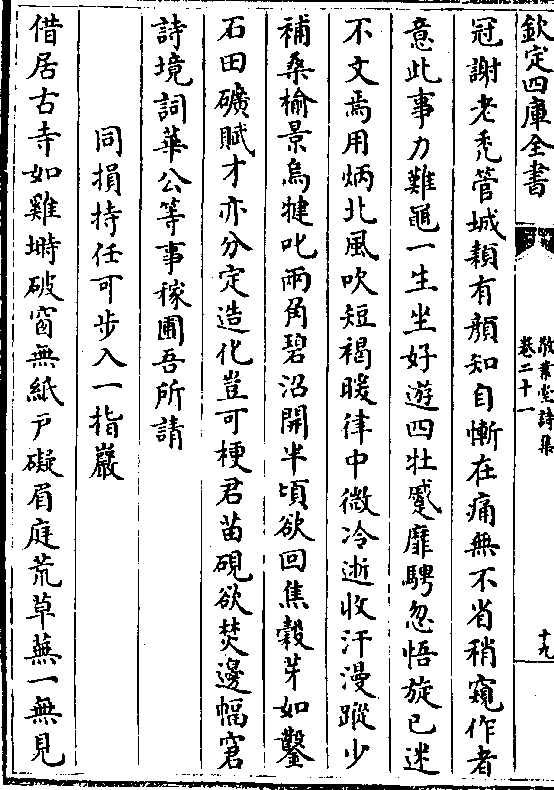 欽定四庫全書
敬業堂詩集
卷二十一
十九
冠謝老禿管城頴有頴知自慚在痛無不省稍窺作者
意此事力難黽一生坐好遊四牡蹙靡騁忽悟旋已迷
不文焉用炳北風吹短褐暖律中微冷逝收汗漫蹤少
補桑榆景烏犍叱兩角碧沼開半頃欲回焦穀芽如鑿
石田礦賦才亦分定造化豈可梗君苗硯欲焚邊幅窘
詩境詞華公等事稼圃吾所請
同損持任可步入一指巖
借居古寺如雞塒破窗無紙戶礙眉庭荒草蕪一無見